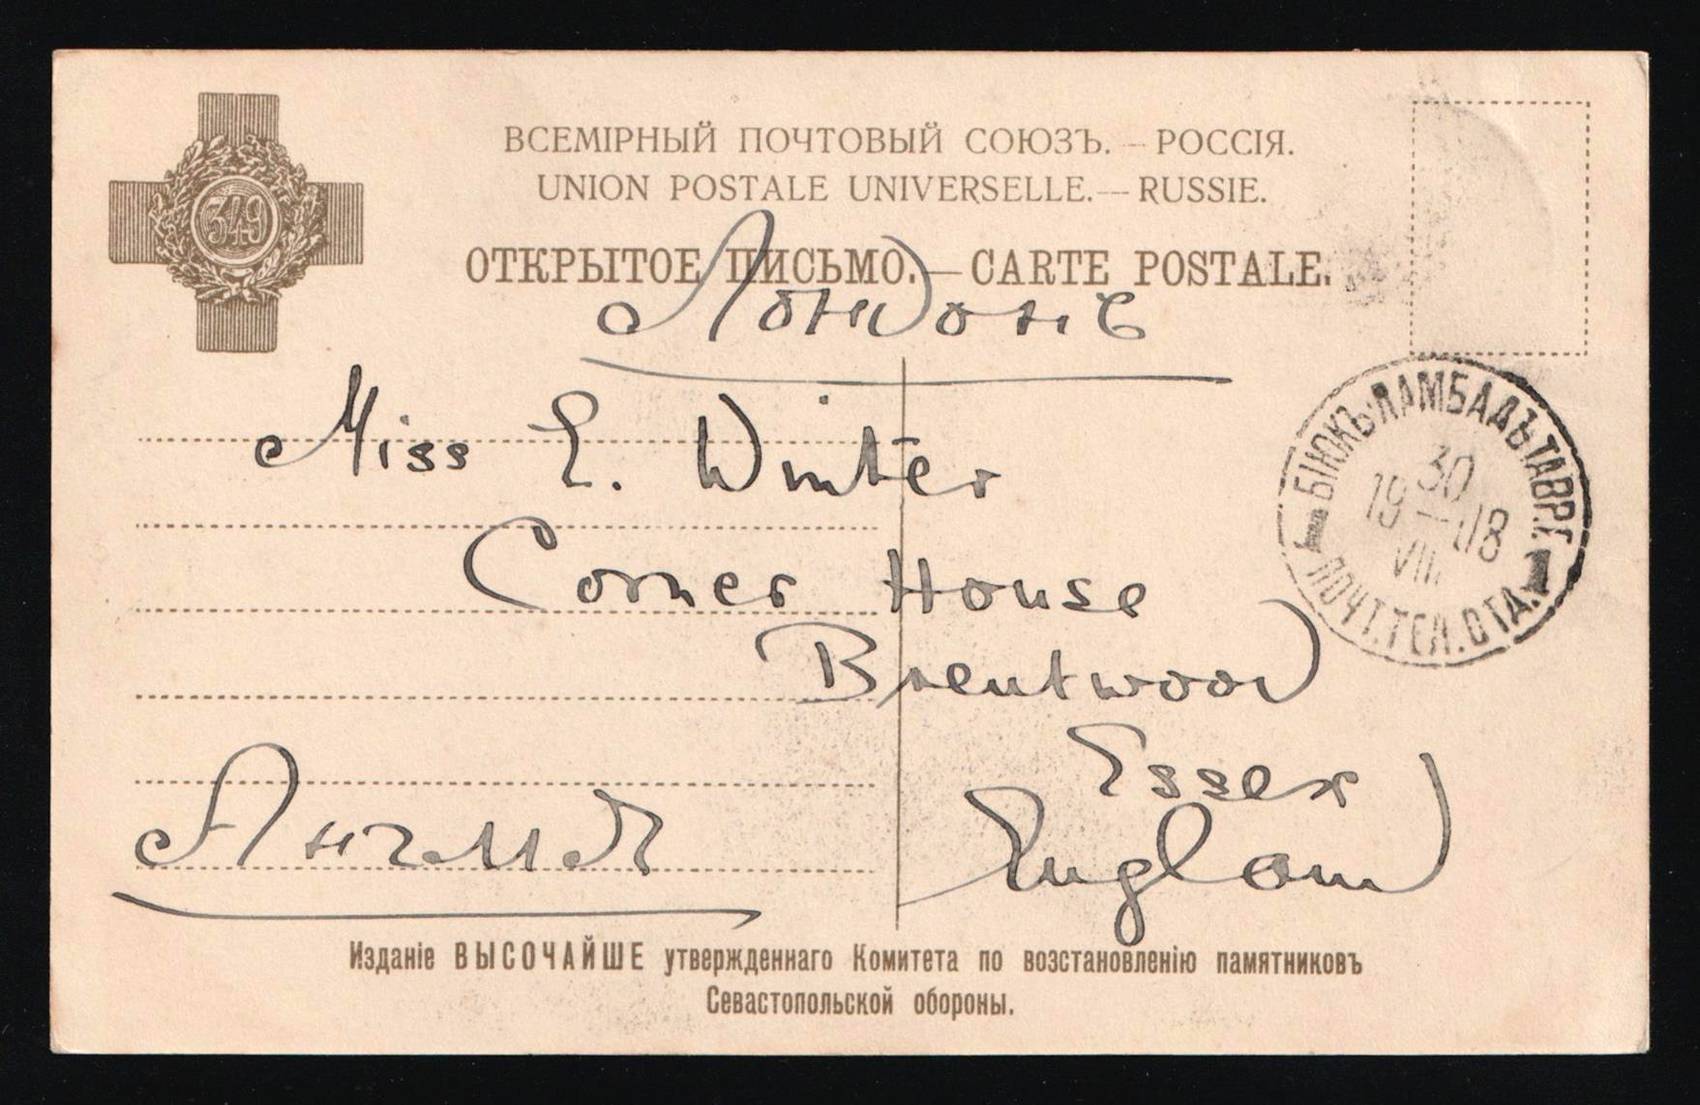 349
ВСЕМІРНЫЙ ПОЧТОВЫЙ СОЮЗЪ. – РОССІЯ.
UNION POSTALE UNIVERSELLE. — RUSSIE.
ОТКРЫТОЕ ПИСЬМО. — CARTE POSTALE.
Лондонъ
Miss E. Winter
Corner House
Brentwood
Essex
England
Англія
БІЮКЪ-ЛАМБАДЪ ТАВР.Г.
30
19 — 08
VIII
1 ПОЧТ.ТЕЛ.ОТД. 1
Изданіе ВЫСОЧАЙШЕ утвержденнаго Комитета по возстановленію памятниковъ
Севастопольской обороны.